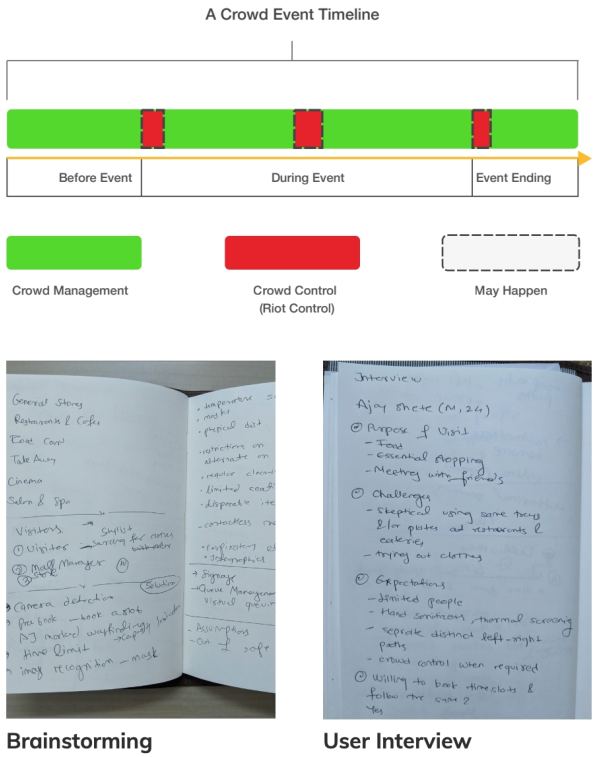 A Crowd Event Timeline
Before Event
During Event
Event Ending
Crowd Management
Crowd Control
(Riot Control)
May Happen
General Stores
Restaurants & Cafes
Food Court
Take Away
Cinema
Salon & Spa
Visitors
Stylist
① Visitor
② Mall Manager
③ Store
Solution
Camera detection
Pre book - book a slot
time limit
image recognition - mask
temperature
physical dist
restrictions on
alternate on
regular
limited
contactless
Infographics
Signage
Queue Management
Virtual
Assumptions
Out of
Interview
Ajay Shete (M, 24)
Purpose of Visit
- Food
- Essential shopping
- Meeting with friends
Challenges
- Skeptical using same trays
&/or plates at restaurants &
eateries
- trying out clothes
Expectations
- Limited people
- Hand sanitizers, thermal screening
- seprate distinct left-right
paths
- crowd control when required
Willing to book timeslots &
follow the same?
Yes
Brainstorming
User Interview